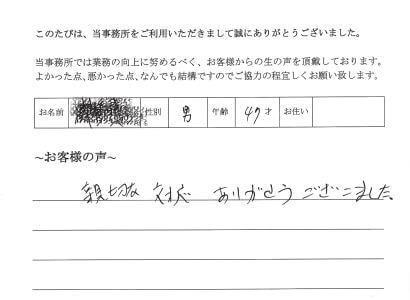 このたびは、当事務所をご利用いただきまして誠にありがとうございました。
当事務所では業務の向上に努めるべく、お客様からの生の声を頂戴しております。
よかった点、悪かった点、なんでも結構ですのでご協力の程宜しくお願い致します。
お名前 性別 男 年齢 47才 お住い
~お客様の声~
親切な対応 ありがとうございました